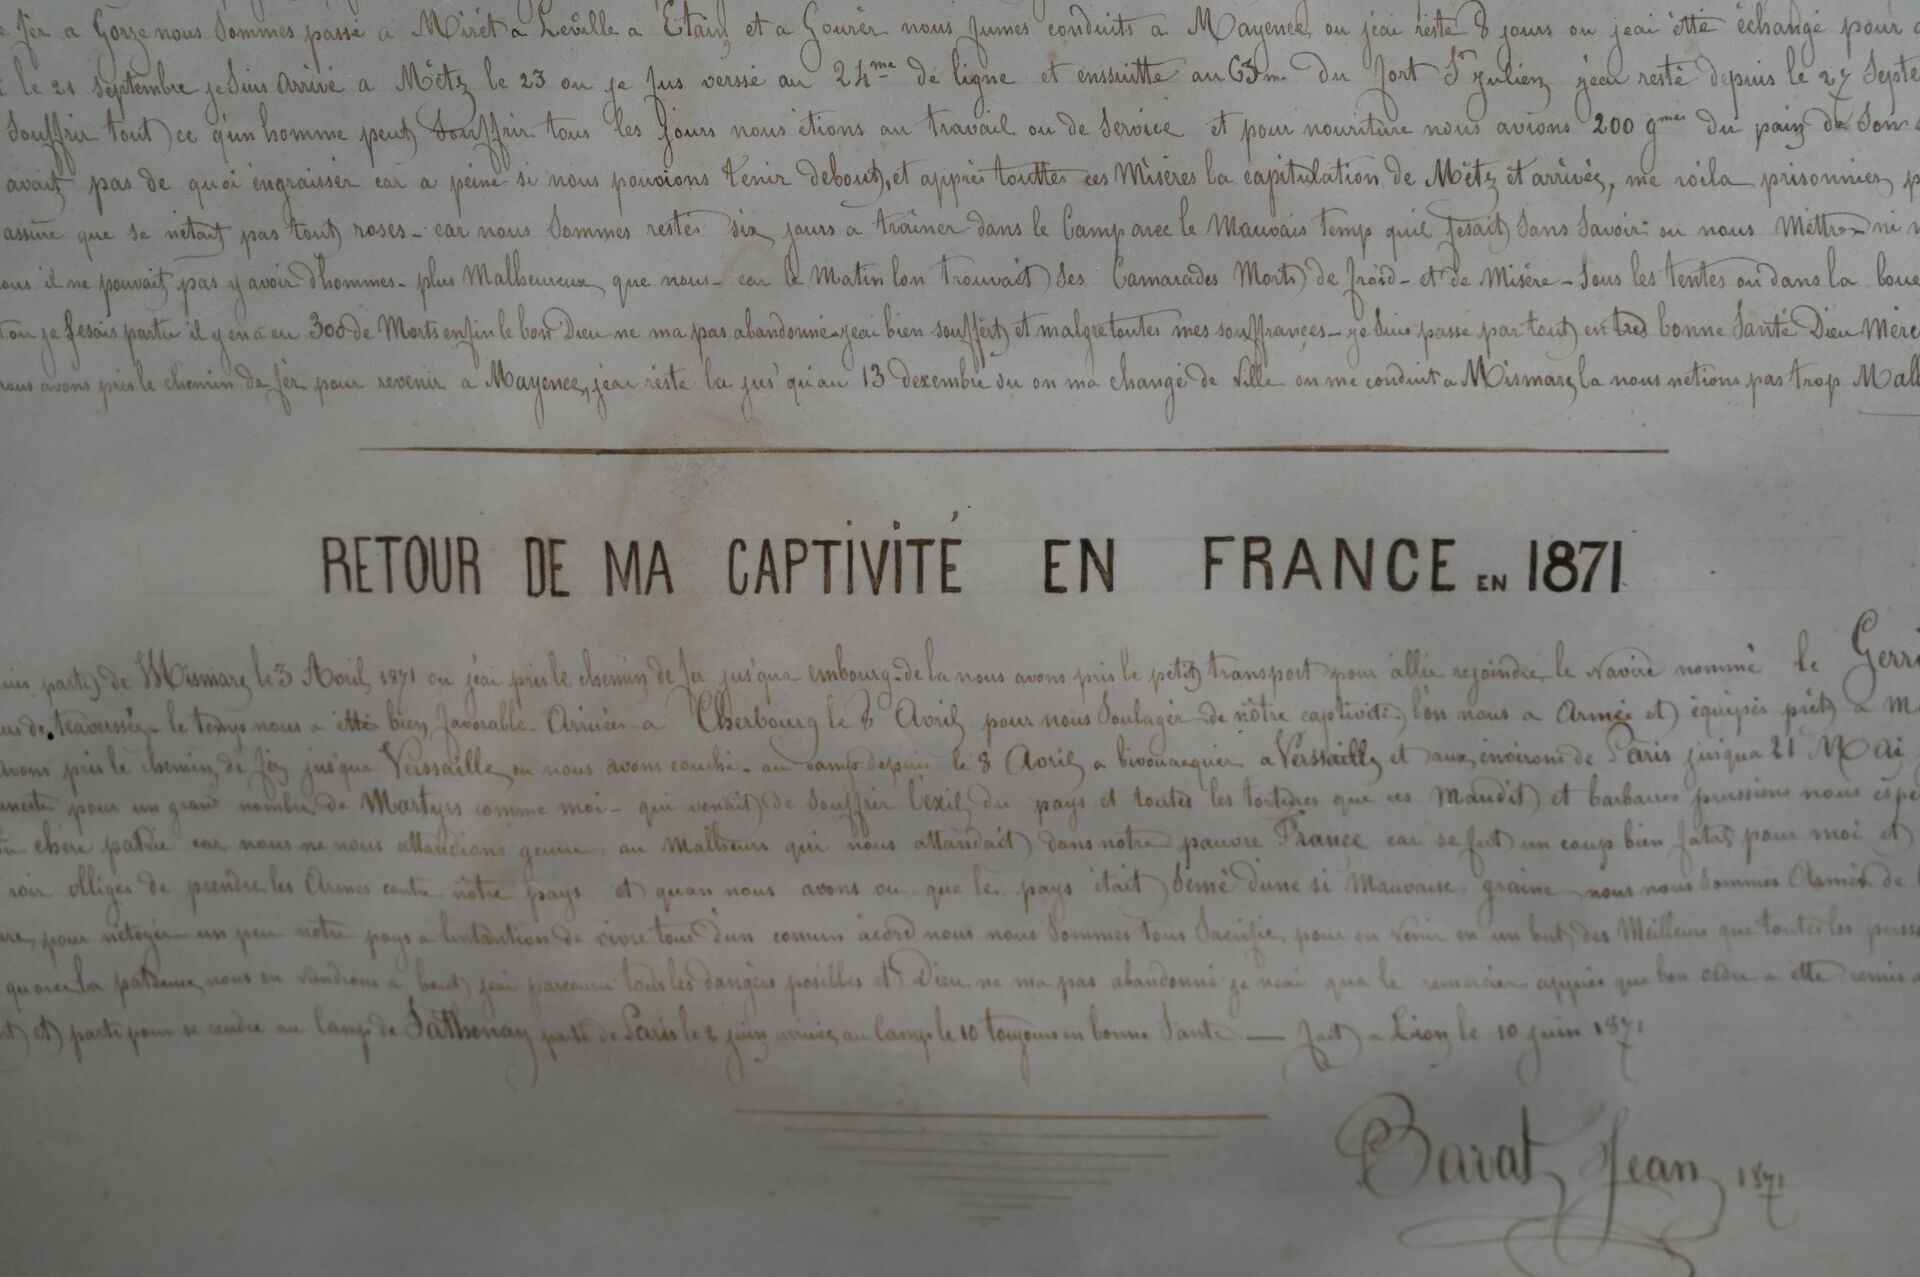 fer a Gorze nous Sommes passé a Mirét a Leville a Etain, et a Gourér nous fumes conduits a Mayence, ou jéai resté 8 jours ou jeai étté échangé pour
le 21 septembre je Suis arrivé a Métz le 23 ou je fus verssé au 24me de ligne et enssuitte au 63m. du fort St julien jéai resté depuis le 27 Septe
Souffrir tout ce qun homme peut Souffrir tous les jours nous étions au travail ou de Service et pour nouriture nous avions 200 gmes du pain de Son
avait pas de quoi engraissér car a péine si nous pouvions tenir debout, et apprés touttes ces Miséres la capitulation de Métz ét arrivée, me voila prisonnier
assure que se nétait pas tout roses - car nous Sommes restés six jours a traîner dans le Camp avec le Mauvais temp quil fesait Sans Savoir ou nous Méttre ni
il ne pouvait pas y avoir d'hommes - plus Malheureux que nous - car le Matin lon trouvait des Camarades Morts de froid - et de Misère - Sous les tentes ou dans la boue
ou je fesais partie il y en a eu 300 de Morts enfin le bon Dieu ne ma pas abandonné - jeai bien souffért et malgre toutes mes souffrances - je Suis passe par tout en tres bonne Santé Dieu Merc
nous avons pris le chemin de fér pour revenir a Mayence, jéai résté la jus'qu'au 13 dexembre ou on ma changé de ville on me conduit a Wismare, la nous nétions pas trop Mall
RETOUR DE MA CAPTIVITÉ EN FRANCE EN 1871
parti de Wismare, le 3 Avril 1871 ou jéai pris le chemin de fer jus'qua embourg - de la nous avons pris le petit transport pour allér rejoindre le Navire nommé le Gerri
de traversée - le temps nous a étté bien favorable - Arrivés a Cherbourg le 8 Avril pour nous Soulagér de nôtre captivité, l'on nous a Armée et équipés prét a
avons pris le chemin de fér jus'qua Verssaille, ou nous avons couché - au camp depuis le 8 Avril a bivouacquier a Verssaille et aux énvirons de Paris jusqua 21 Mai
pour un grand nombre de Martyrs comme moi - qui venait de Souffrir l'éxil du pays et toutes les tortures que ces Maudit et barbares prussiens nous
chére patrie car nous ne nous attandions guerre, au Malheurs qui nous attandait dans notre pauvre France car se fut un coup bien fatal pour moi et
voir obligés de prendre les Armes contre nôtre pays et quan nous avons vu que le pays était Semé dune si Mauvaise graine, nous nous Sommes Armés de
pour nétoyér un peu notre pays a lintantion de vivre tous dun comun acord nous nous Sommes tous Sacrifié pour en venir en un but des Meilleurs que toutes les perss
quavec la patience, nous en viendrons a bout jéai parcouru tous les dangérs posibles et Dieu ne ma pas abandonné je néai qua le remercier apprés que bon ordre a étté remis
et parti pour se rendre au Camp de Sathonay parti de Paris le 2 juin arrivée au Camp le 10 toujours en bonne Santé — fait a Lion le 10 juin 1871
Barat Jean 1871